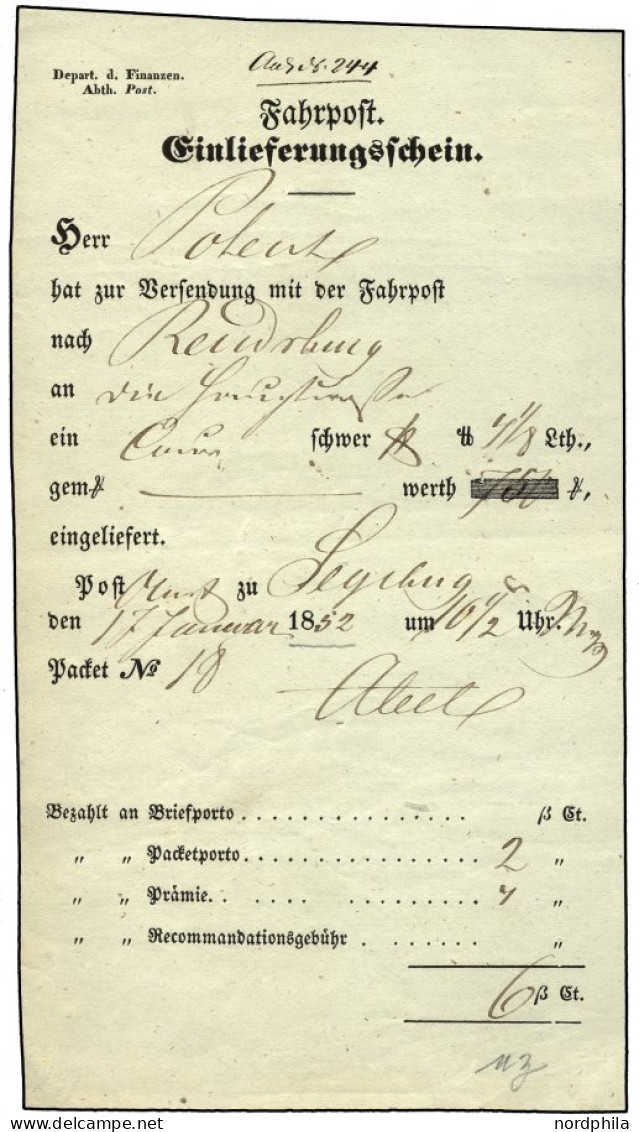 Depart. d. Finanzen.
Abth. Post.
244
Fahrpost.
Einlieferungsschein.
Herr
hat zur Versendung mit der Fahrpost
nach Rendsburg
an die
ein schwer ℔ Lth.,
gem werth 750
eingeliefert.
Post Amt zu Segeberg
den 17 Januar 1852 um 10 1/2 Uhr.
Packet No 18
Bezahlt an Briefporto ß Ct.
" " Packetporto 2 "
" " Prämie. 4 "
" " Recommandationsgebühr "
6 ß Ct.
nordphila